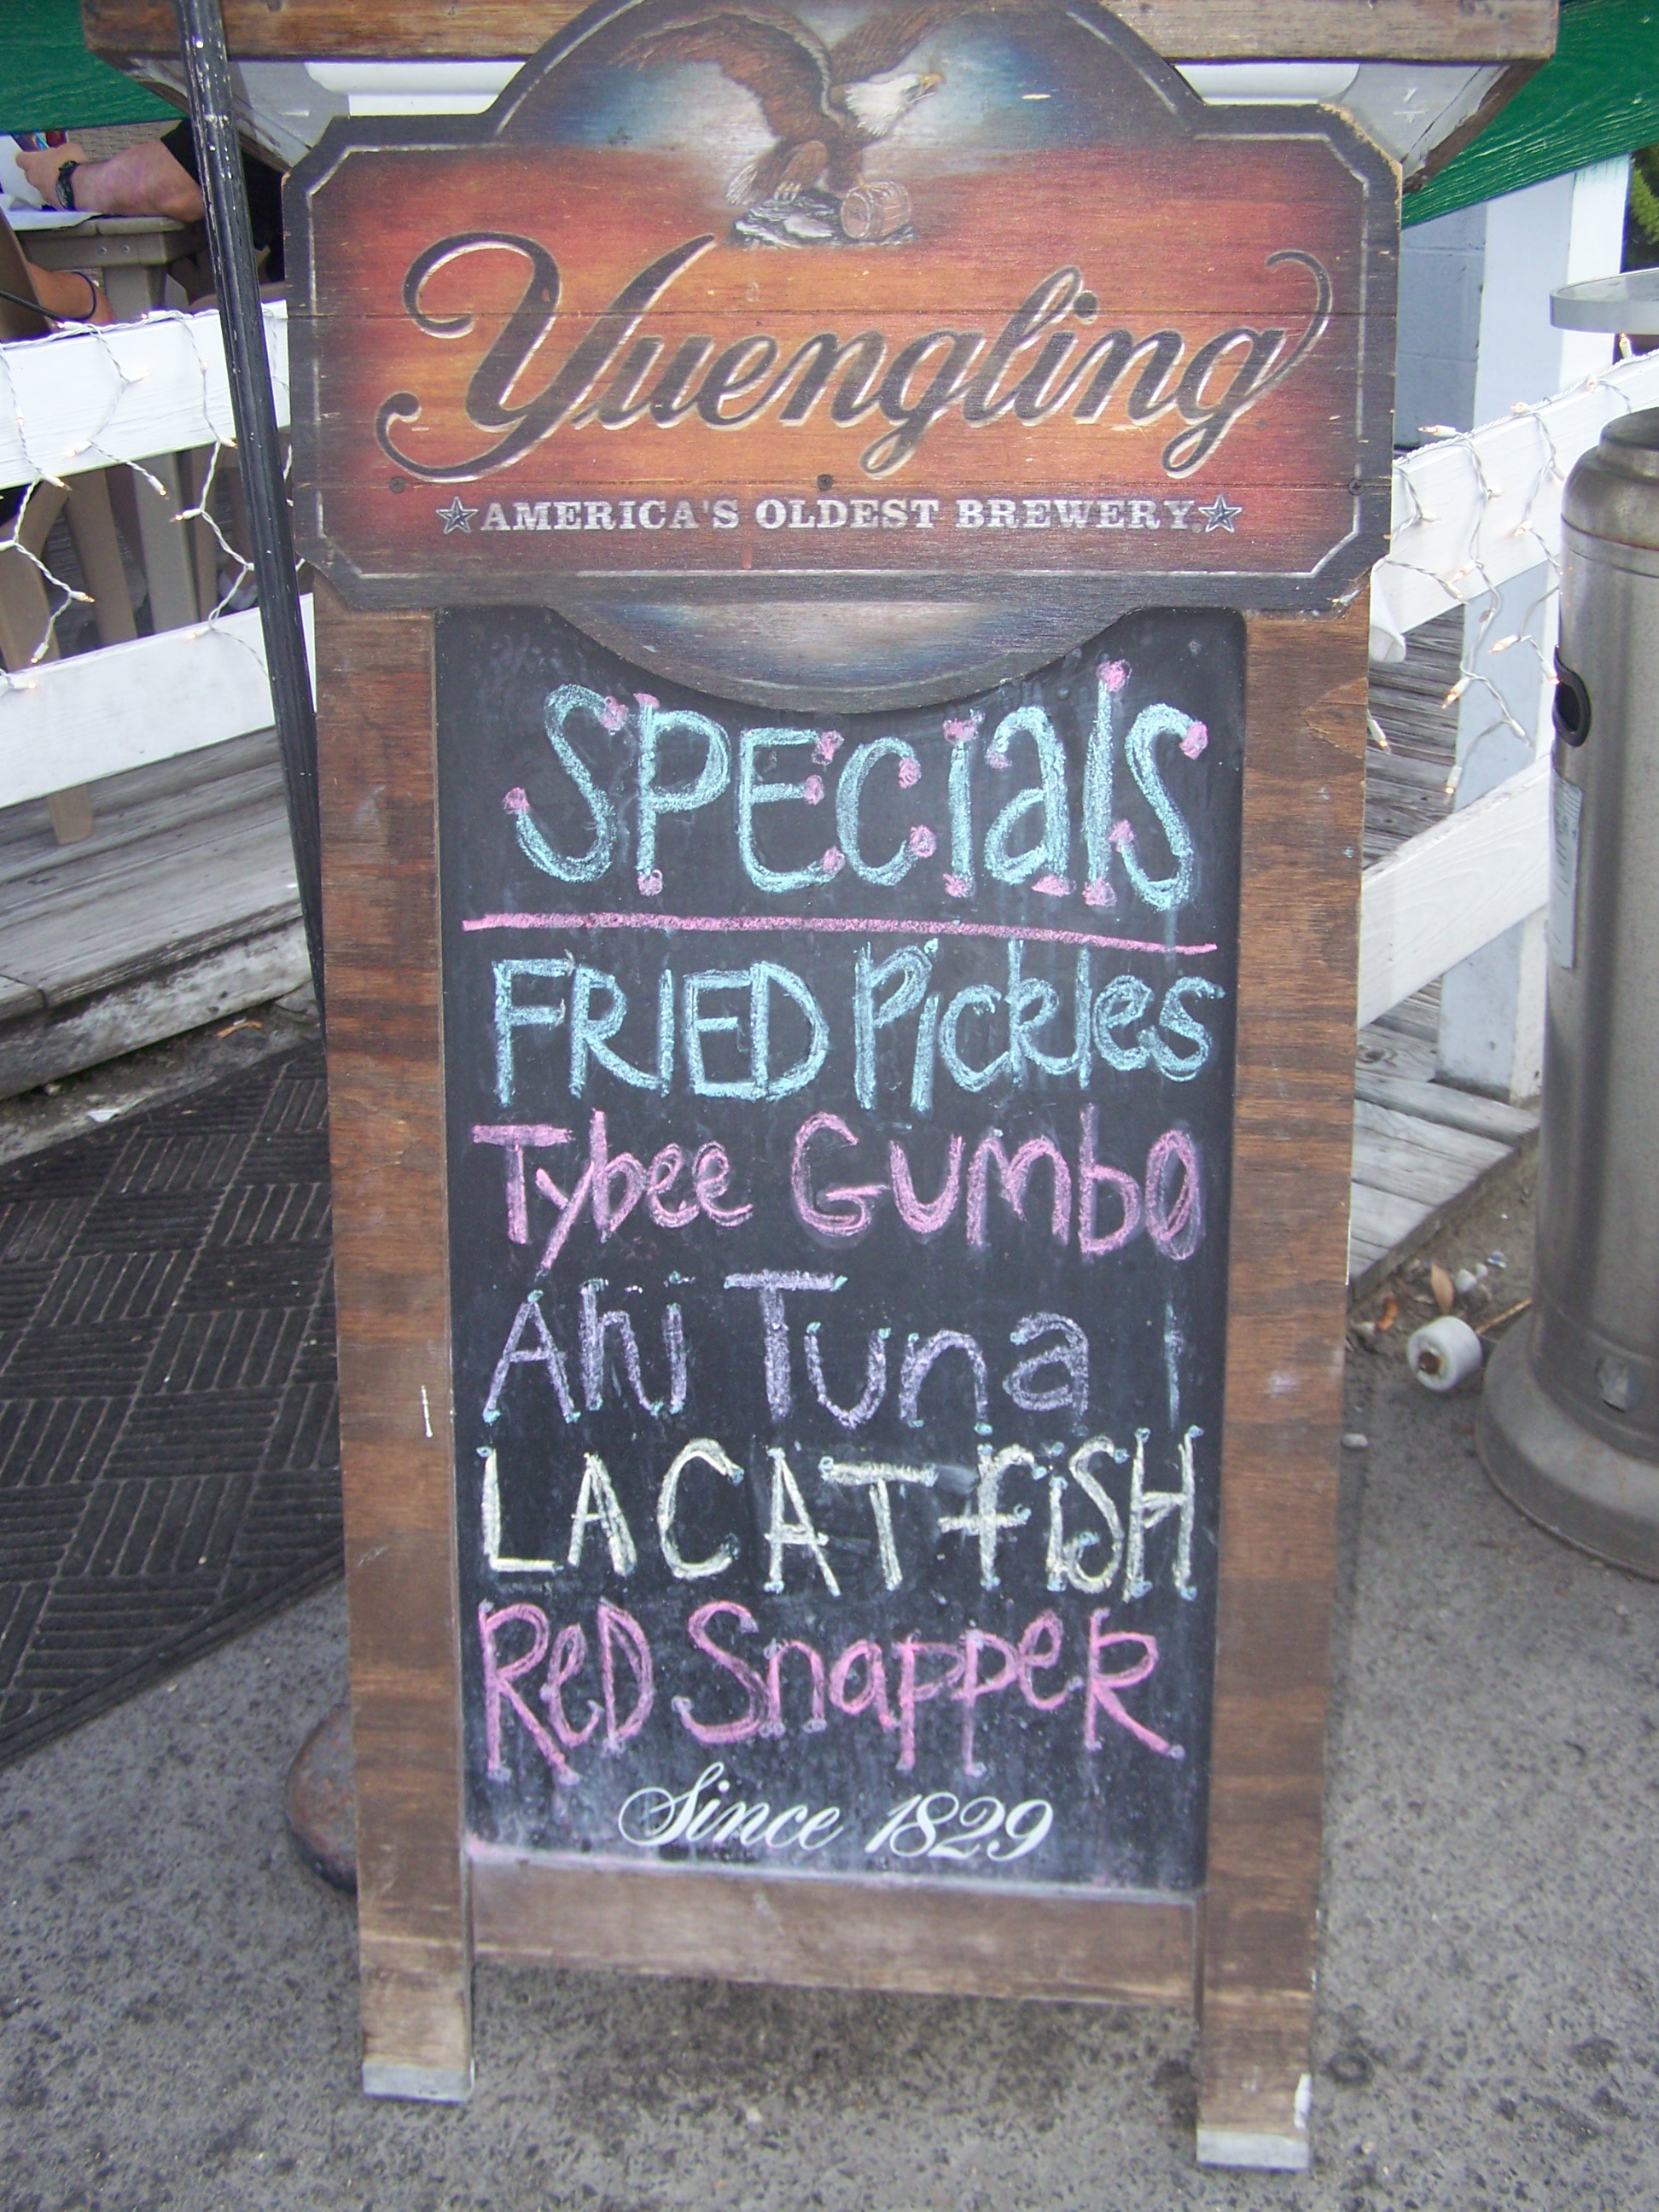 Yuengling
AMERICA'S OLDEST BREWERY.
SPECIALS
FRIED Pickles
Tybee GUMBO
Ahi Tuna
LA CATFISH
ReD SnappeR
Since 1829